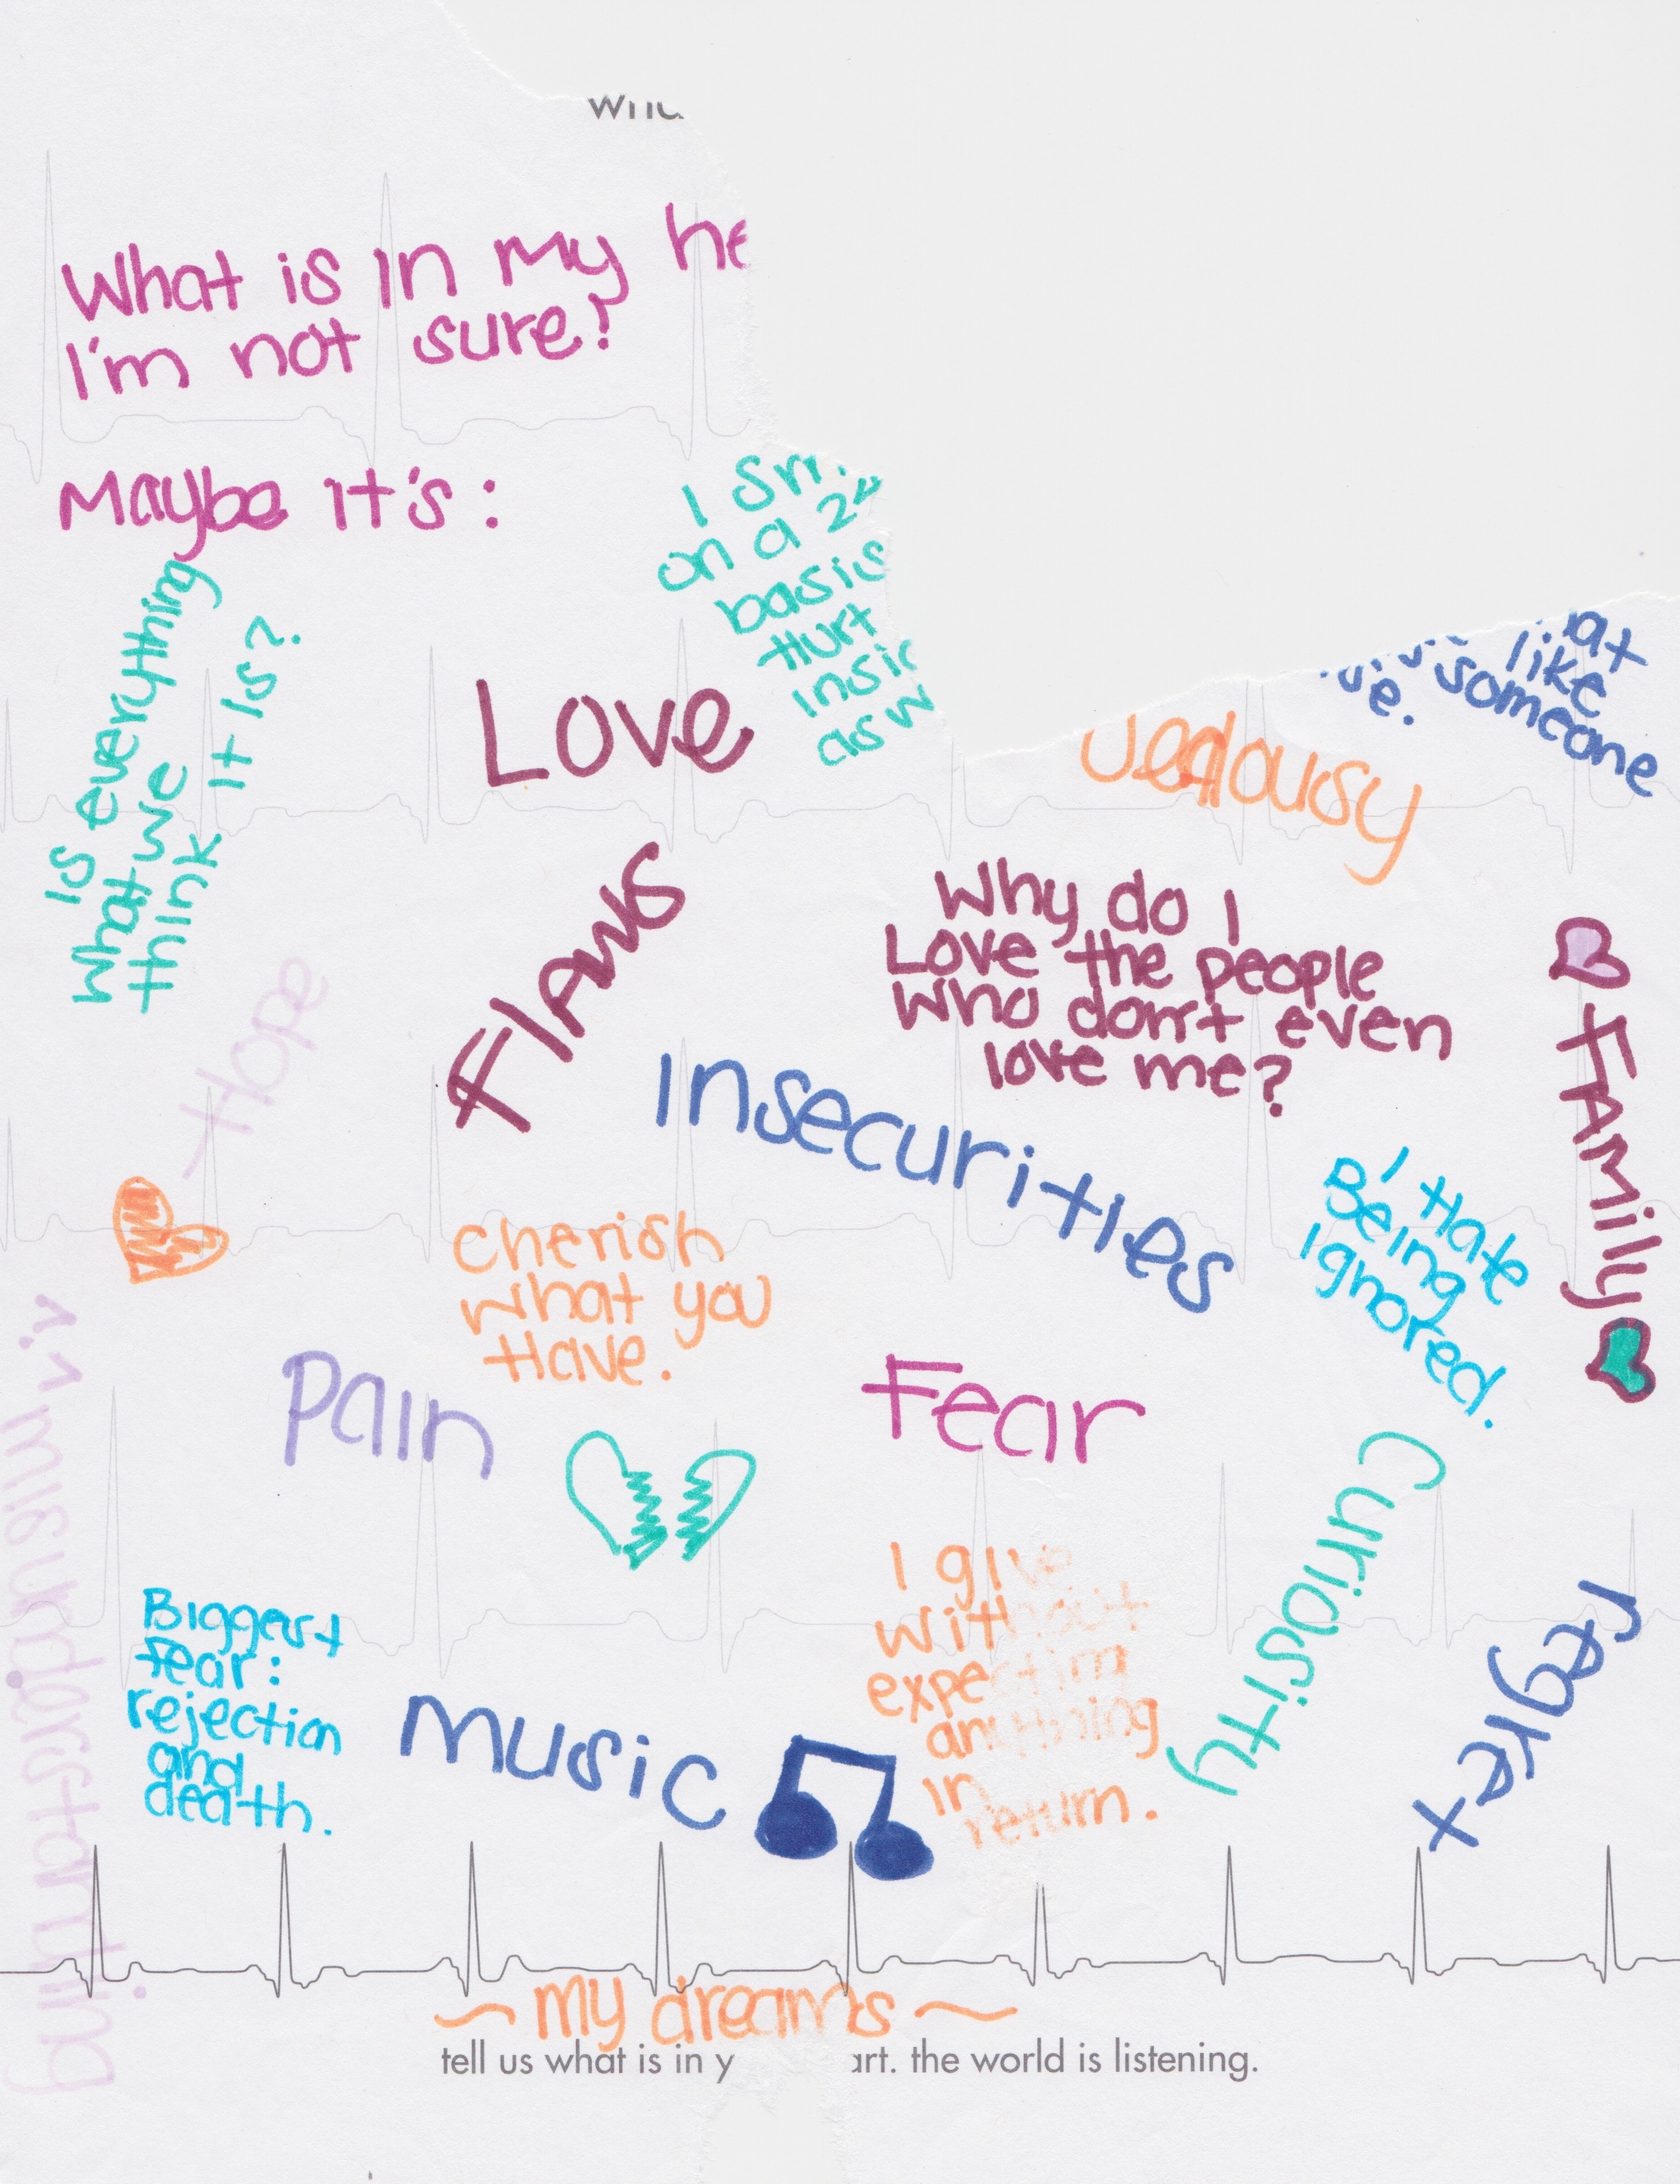 What is in my
I'm not sure!
Maybe It's:
Is everything
what we
think It Is?
I
on a
basis
Hurt
as
like
someone
Love
Jealousy
Flaws
Why do I
Love the people
Who don't even
love me?
Hope
Insecurities
Family
I Hate
Being
Ignored.
Cherish
what you
Have.
Pain
Fear
Curiosity
regret
Biggest
fear:
rejection
and
death.
music
I give
without
expecting
anything
in
return.
misunderstanding
~ my dreams ~
tell us what is in
the world is listening.